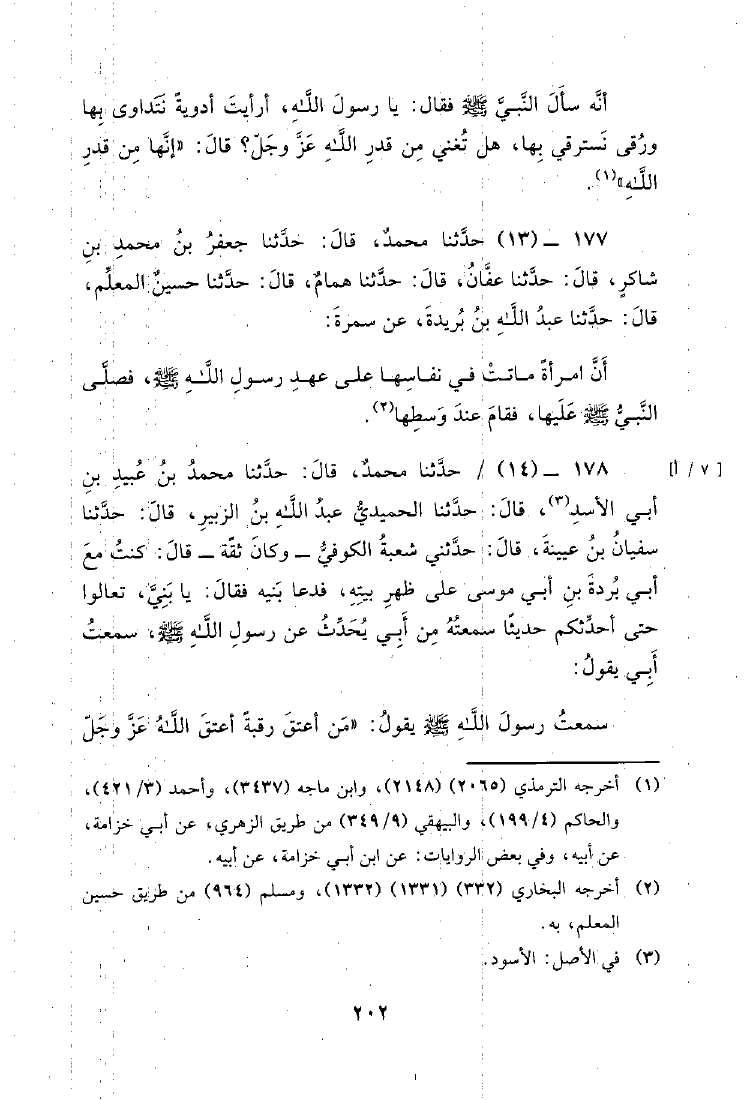 أنَّه سأَلَ النَّبيَّ ﷺ فقال: يا رسولَ اللَّهِ، أرأيتَ أدويةً نَتَداوى بِها
ورُقى نَسترقي بِها، هل تُغني مِن قدرِ اللَّهِ عَزَّ وجَلّ؟ قالَ: «إنَّها مِن قدرِ
اللَّهِ»(١).
١٧٧ ــ (١٣) حدَّثنا محمدٌ، قالَ: حدَّثنا جعفرُ بنُ محمدِ بنِ
شاكرٍ، قالَ: حدَّثنا عفَّانُ، قالَ: حدَّثنا همامٌ، قالَ: حدَّثنا حسينٌ المعلِّم،
قالَ: حدَّثنا عبدُ اللَّهِ بنُ بُريدةَ، عن سمرةَ:
أَنَّ امرأةً ماتتْ في نفاسِها على عهدِ رسولِ اللَّهِ ﷺ، فصلَّى
النَّبيُّ ﷺ عَلَيها، فقامَ عندَ وَسطِها(٢).
١٧٨ ــ (١٤) / حدَّثنا محمدٌ، قالَ: حدَّثنا محمدُ بنُ عُبيدِ بنِ [٧ / أ]
أبي الأسدِ(٣)، قالَ: حدَّثنا الحميديُّ عبدُ اللَّهِ بنُ الزبيرِ، قالَ: حدَّثنا
سفيانُ بنُ عيينةَ، قالَ: حدَّثني شعبةُ الكوفيُّ ــ وكانَ ثقةً ــ قالَ: كنتُ معَ
أبي بُردةَ بنِ أبي موسى على ظهرِ بيتِهِ، فدعا بَنيه فقالَ: يا بَنِيَّ، تعالوا
حتى أحدِّثكم حديثًا سمعتُهُ مِن أَبِي يُحَدِّثُ عن رسولِ اللَّهِ ﷺ، سمعتُ
أَبِي يقولُ:
سمعتُ رسولَ اللَّهِ ﷺ يقولُ: «مَن أعتقَ رقبةً أعتقَ اللَّهُ عَزَّ وجَلّ
(١) أخرجه الترمذي (٢٠٦٥) (٢١٤٨)، وابن ماجه (٣٤٣٧)، وأحمد (٣/ ٤٢١)،
والحاكم (٤/ ١٩٩)، والبيهقي (٩/ ٣٤٩) من طريق الزهري، عن أبي خزامة،
عن أبيه، وفي بعض الروايات: عن ابن أبي خزامة، عن أبيه.
(٢) أخرجه البخاري (٣٣٢) (١٣٣١) (١٣٣٢)، ومسلم (٩٦٤) من طريق حسين
المعلم، به.
(٣) في الأصل: الأسود.
٢٠٢